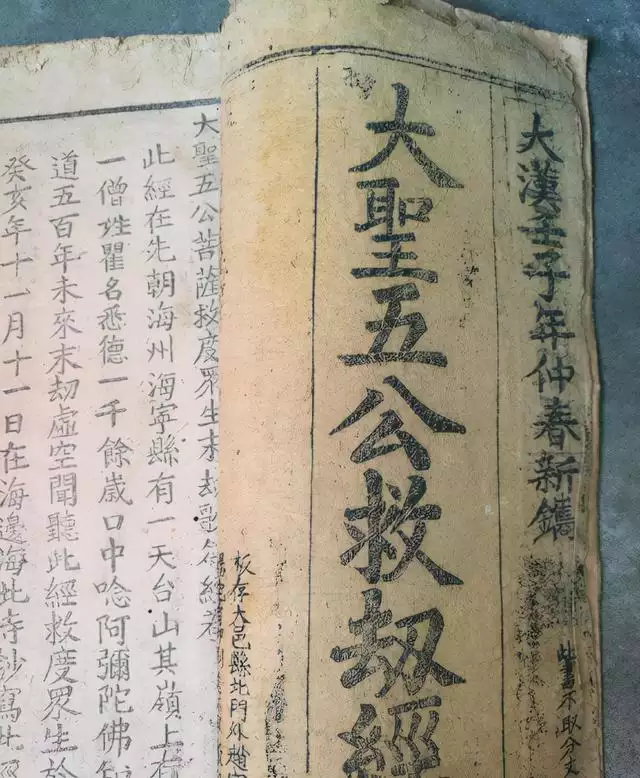 大漢壬子年仲春新鐫
此書不取分文
大聖五公救劫經
板存大邑縣北門外趙
大聖五公菩薩救度眾生末劫歌
經者
此經在先朝海州海寧縣有一天台山其嶺上有
一僧姓瞿名悉德一千餘歲口中唸阿彌陀佛知
道五百年未來末劫虛空聞聽此經救度眾生於
癸亥年十一月十一日在海邊海北寺抄寫此經